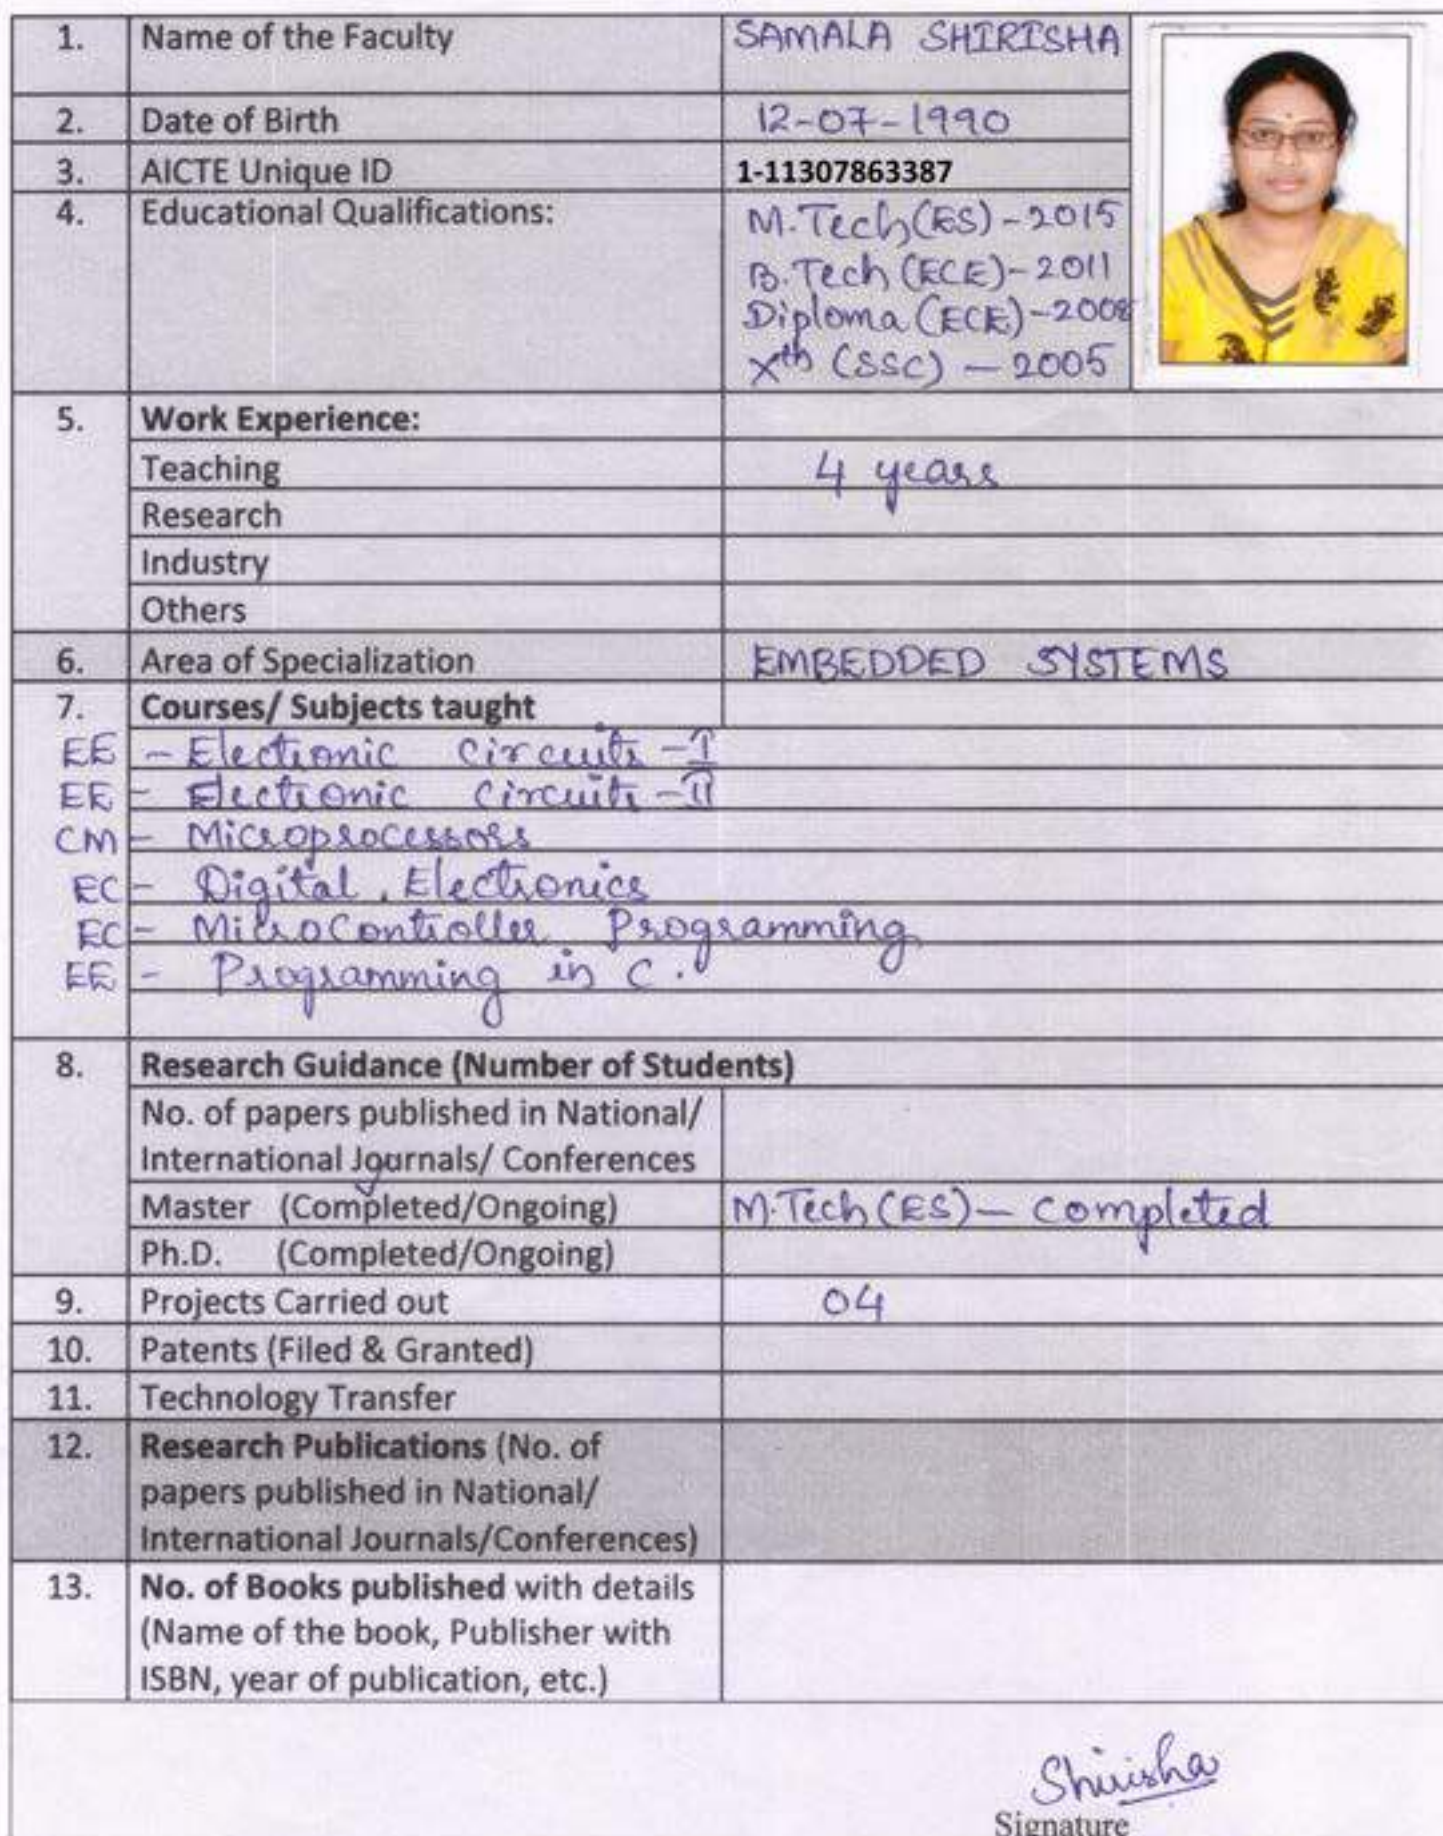 1. Name of the Faculty SAMALA SHIRISHA
2. Date of Birth 12-07-1990
3. AICTE Unique ID 1-11307863387
4. Educational Qualifications: M.Tech(ES)-2015
B.Tech (ECE)-2011
Diploma (ECE)-2008
Xth (SSC) - 2005
5. Work Experience:
Teaching 4 years
Research
Industry
Others
6. Area of Specialization EMBEDDED SYSTEMS
7. Courses/ Subjects taught
EE - Electronic Circuits - I
EE - Electronic Circuits - II
CM - Microprocessors
EC - Digital Electronics
EC - MicroController Programming
EE - Programming in C.
8. Research Guidance (Number of Students)
No. of papers published in National/
International Journals/ Conferences
Master (Completed/Ongoing) M.Tech (ES) - Completed
Ph.D. (Completed/Ongoing)
9. Projects Carried out 04
10. Patents (Filed & Granted)
11. Technology Transfer
12. Research Publications (No. of
papers published in National/
International Journals/Conferences)
13. No. of Books published with details
(Name of the book, Publisher with
ISBN, year of publication, etc.)
Shirisha
Signature